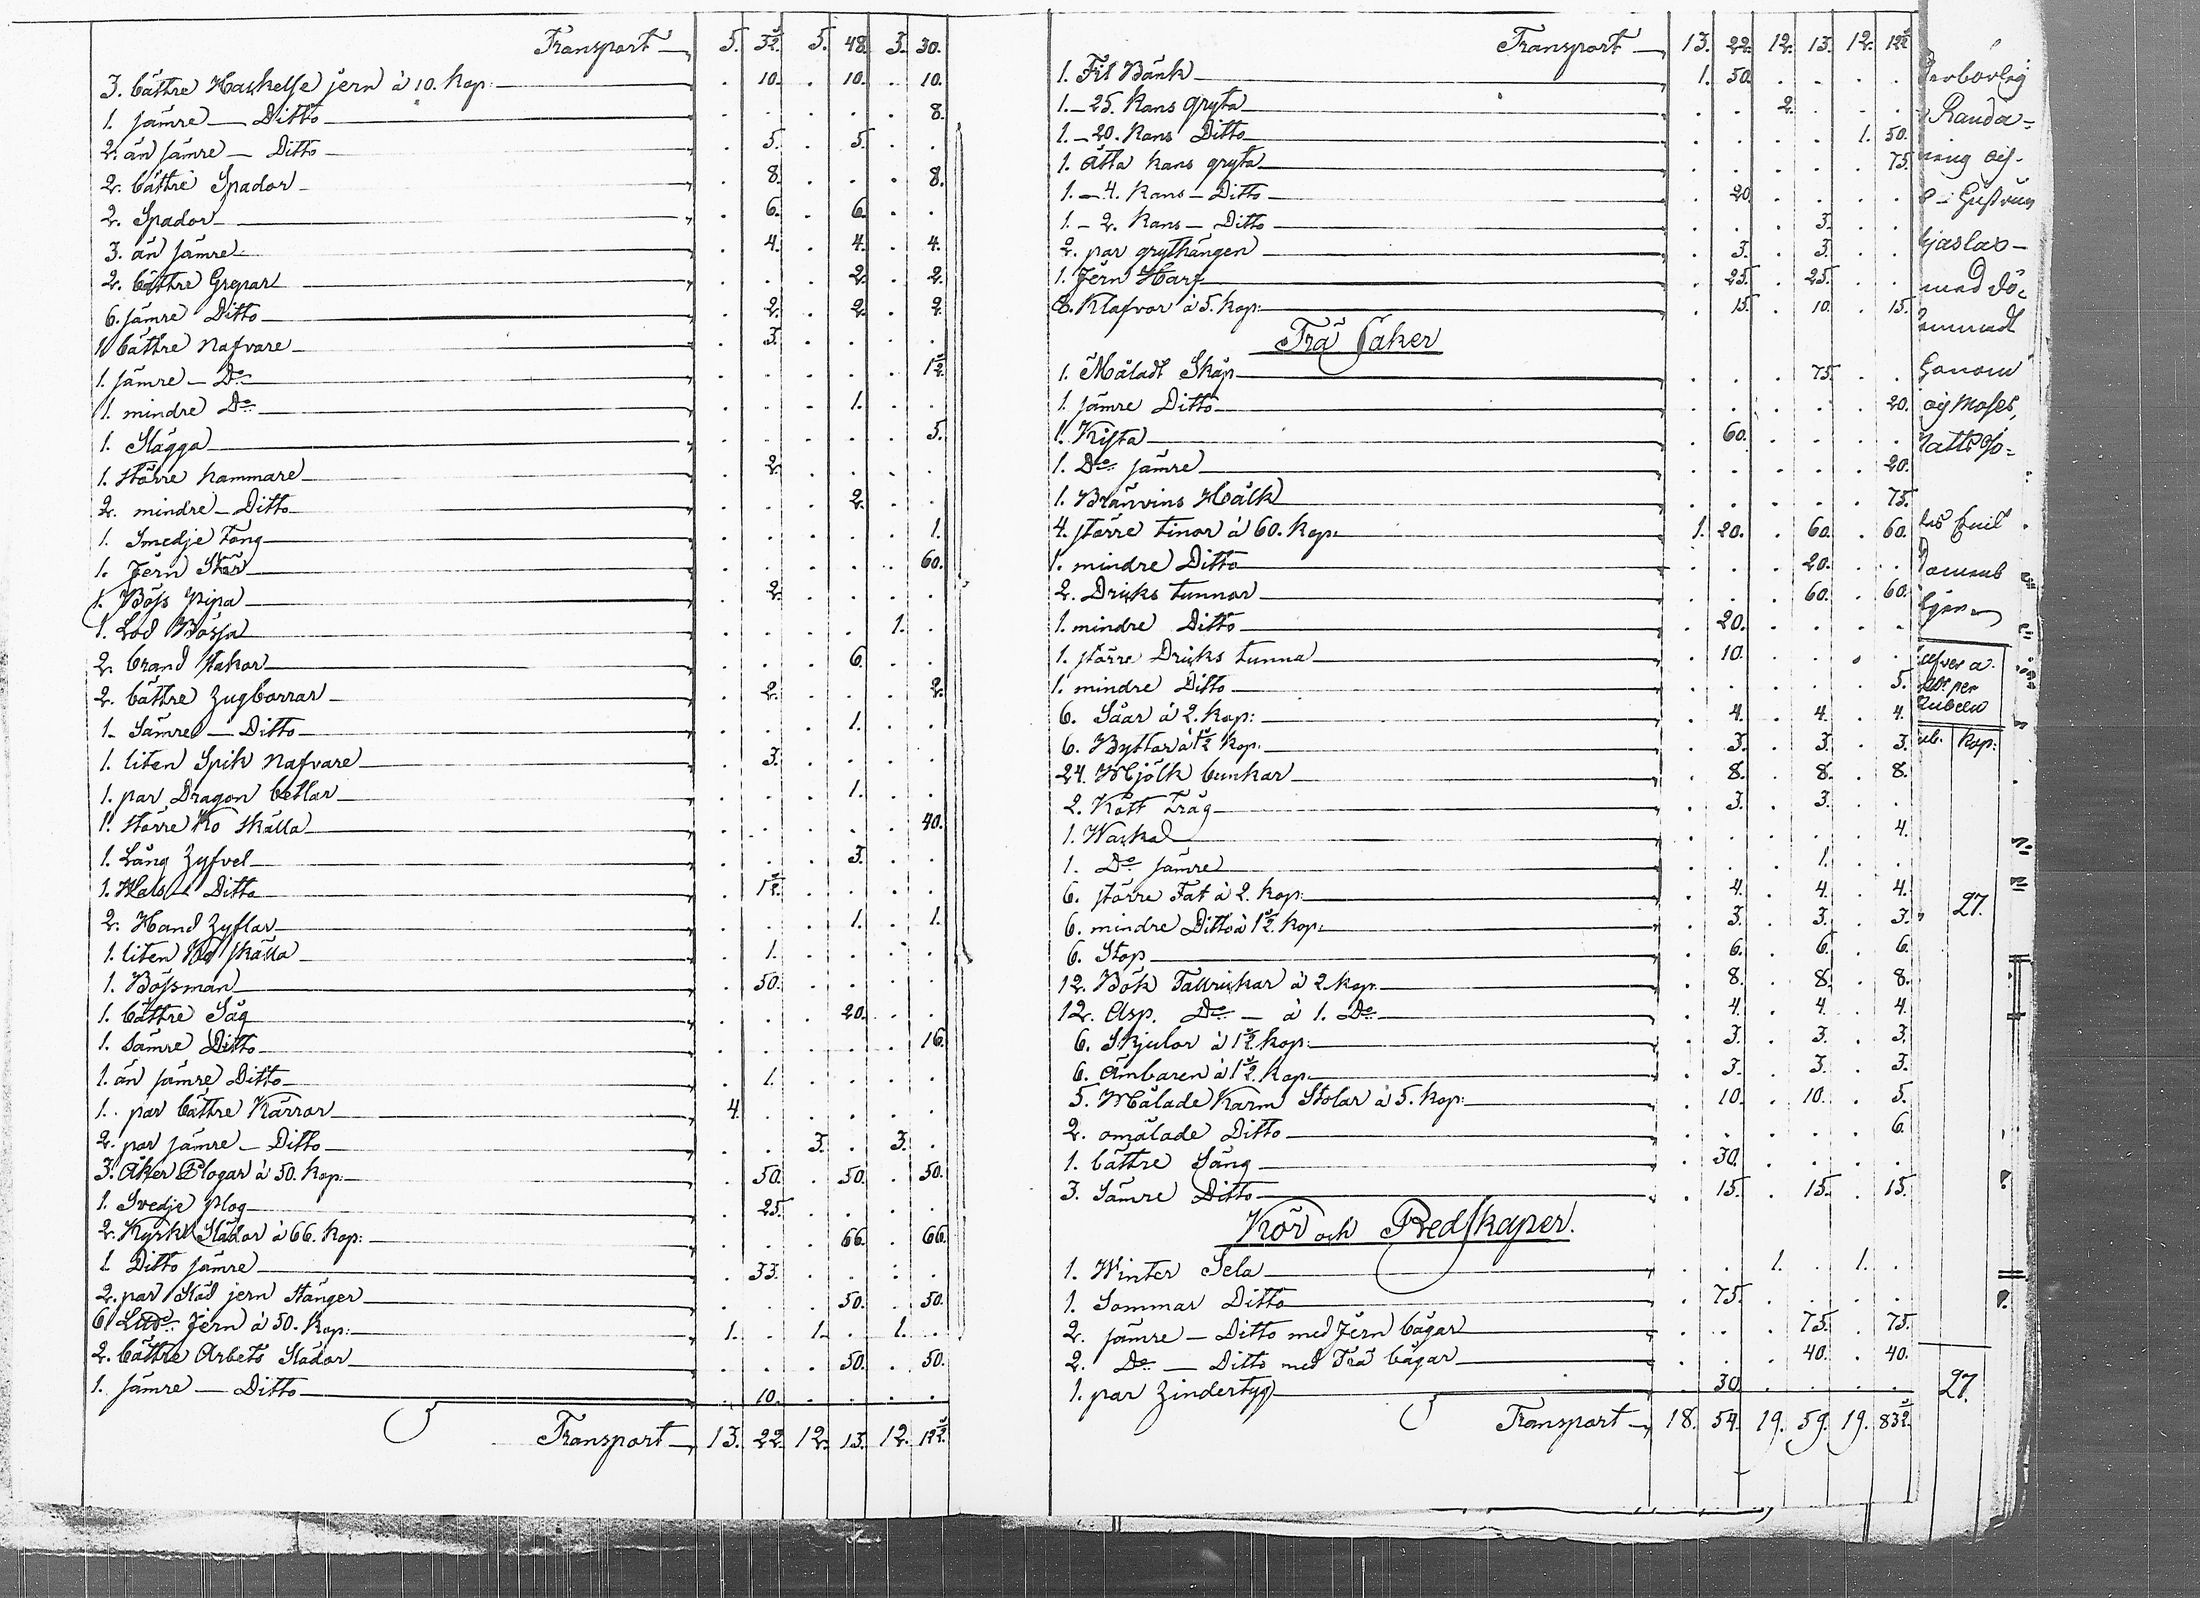 Transport 5. 3½. 5. 48. 3. 30.
3. bättre Hackelse jern à 10. Kop: . 10. . 10. . 10.
1. sämre — Ditto . . . . . 8.
2. än sämre — Ditto . 5. . 5. . .
2. bättre Spador . 8. . . . 8.
2. Spador . 6. . 6. . .
3. än sämre . 4. . 4. . 4.
2. bättre Grepar . . . 2. . 2.
6. sämre Ditto . 2. . 2. . 2.
1. bättre Nafvare . 3. . . . .
1. sämre — Do . . . . . 1½.
1. mindre Do . . . 1. . .
1. Slägga . . . . . 5.
1. större hammare . 2. . . . .
2. mindre — Ditto . . . 2. . .
1. Smedje Tång . . . . . 1.
1. Jern Stör . . . . . 60.
1. Böss pipa . 2. . . . .
1. Lod Bössa . . . . 1. .
2. brand stakar . . . 6. . .
2. bättre Zugborrar . 2. . . . 2.
1. Sämre — Ditto . . . 1. . .
1. liten Spik Nafvare . 3. . . . .
1. par Dragon betlar . . . 1. . .
1. större Ko skälla . . . . . 40.
1. Lång Zyfvel . . . 3. . .
1. Hals — Ditto . 1½. . . . .
2. Hand Zyflar . . . 1. . 1.
1. liten Ko skälla . 1. . . . .
1. Bössman . 50. . . . .
1. bättre Såg . . . 20. . .
1. sämre Ditto . . . . . 16.
1. än sämre Ditto . 1. . . . .
1. par bättre Kärror 4. . . . . .
2. par sämre — Ditto . . 3. . 3. .
3. Åker Plogar à 50. Kop: . 50. . 50. . 50.
1. Svedje plog . 25. . . . .
2. Kyrk Slädor à 66. Kop: . . . 66. . 66.
1. Ditto sämre . 33. . . . .
2. par Släd jern stänger . . . 50. . 50.
6. Jern à 50. Kop: 1. . 1. . 1. .
2. bättre Arbets Slädor . . . 50. . 50.
1. sämre — Ditto . 10. . . . .
Transport 13. 22. 12. 13. 12. 12½.
Transport 13. 22. 12. 13. 12. 12½
1. Fil Bänk 1. 50. . . . .
1. — 25. Kans gryta . . 2. . . .
1. — 20. Kans Ditto . . . . 1. 50.
1. Åtta kans gryta . . . . . 75.
1. — 4. Kans — Ditto . 20. . . . .
1. — 2. Kans — Ditto . . . 3. . .
2. par grythängen . 3. . 3. . .
1. Jern Harf . 25. . 25. . .
8. Klafvor à 5. Kop: . 15. . 10. . 15.
Trä Saker
1. Måladt Skåp . . . 75. . .
1. sämre Ditto . . . . . 20.
1. Kista . 60. . . . .
1. Do sämre . . . . . 20.
1. Bränvins Hålk . . . . . 75.
4. större tinor à 60. Kop: 1. 20. . 60. . 60.
1. mindre Ditto . . . 20. . .
2. Dricks tunnor . . . 60. . 60.
1. mindre Ditto . 20. . . . .
1. större Dricks tunna . 10. . . . .
1. mindre Ditto . . . . . 5.
6. Såar à 2. Kop: . 4. . 4. . 4.
6. Byttor à 1½ Kop: . 3. . 3. . 3.
24. Mjölk bunkar . 8. . 8. . 8.
2. Kött Tråg . 3. . 3. . .
1. Waskal . . . . . 4.
1. Do sämre . . . 1. . .
6. större Fat à 2. Kop: . 4. . 4. . 4.
6. mindre Ditto à 1½. Kop: . 3. . 3. . 3.
6. Stop . 6. . 6. . 6.
12. Bök Tallrickar à 2. Kop: . 8. . 8. . 8.
12. Asp. Do — à 1. Do . 4. . 4. . 4.
6. Skjulor à 1½. Kop: . 3. . 3. . 3.
6. Ämbaren à 1½. Kop: . 3. . 3. . 3.
5. Målade Karm Stolar à 5. Kop: . 10. . 10. . 5.
2. omålade Ditto . . . . . 6.
1. bättre Säng . 30. . . . .
3. Sämre Ditto . 15. . 15. . 15.
Kör och Redskaper.
1. Winter Sela . . 1. . 1. .
1. Sommar Ditto . 75. . . . .
2. sämre — Ditto med Jern bågar . . . 75. . 75.
2. Do — Ditto med Trä bågar . . . 40. . 40.
1. par Zindertyg . 30. . . . .
Transport 18. 54. 19. 59. 19. 83½.
Kop:
27.
27.